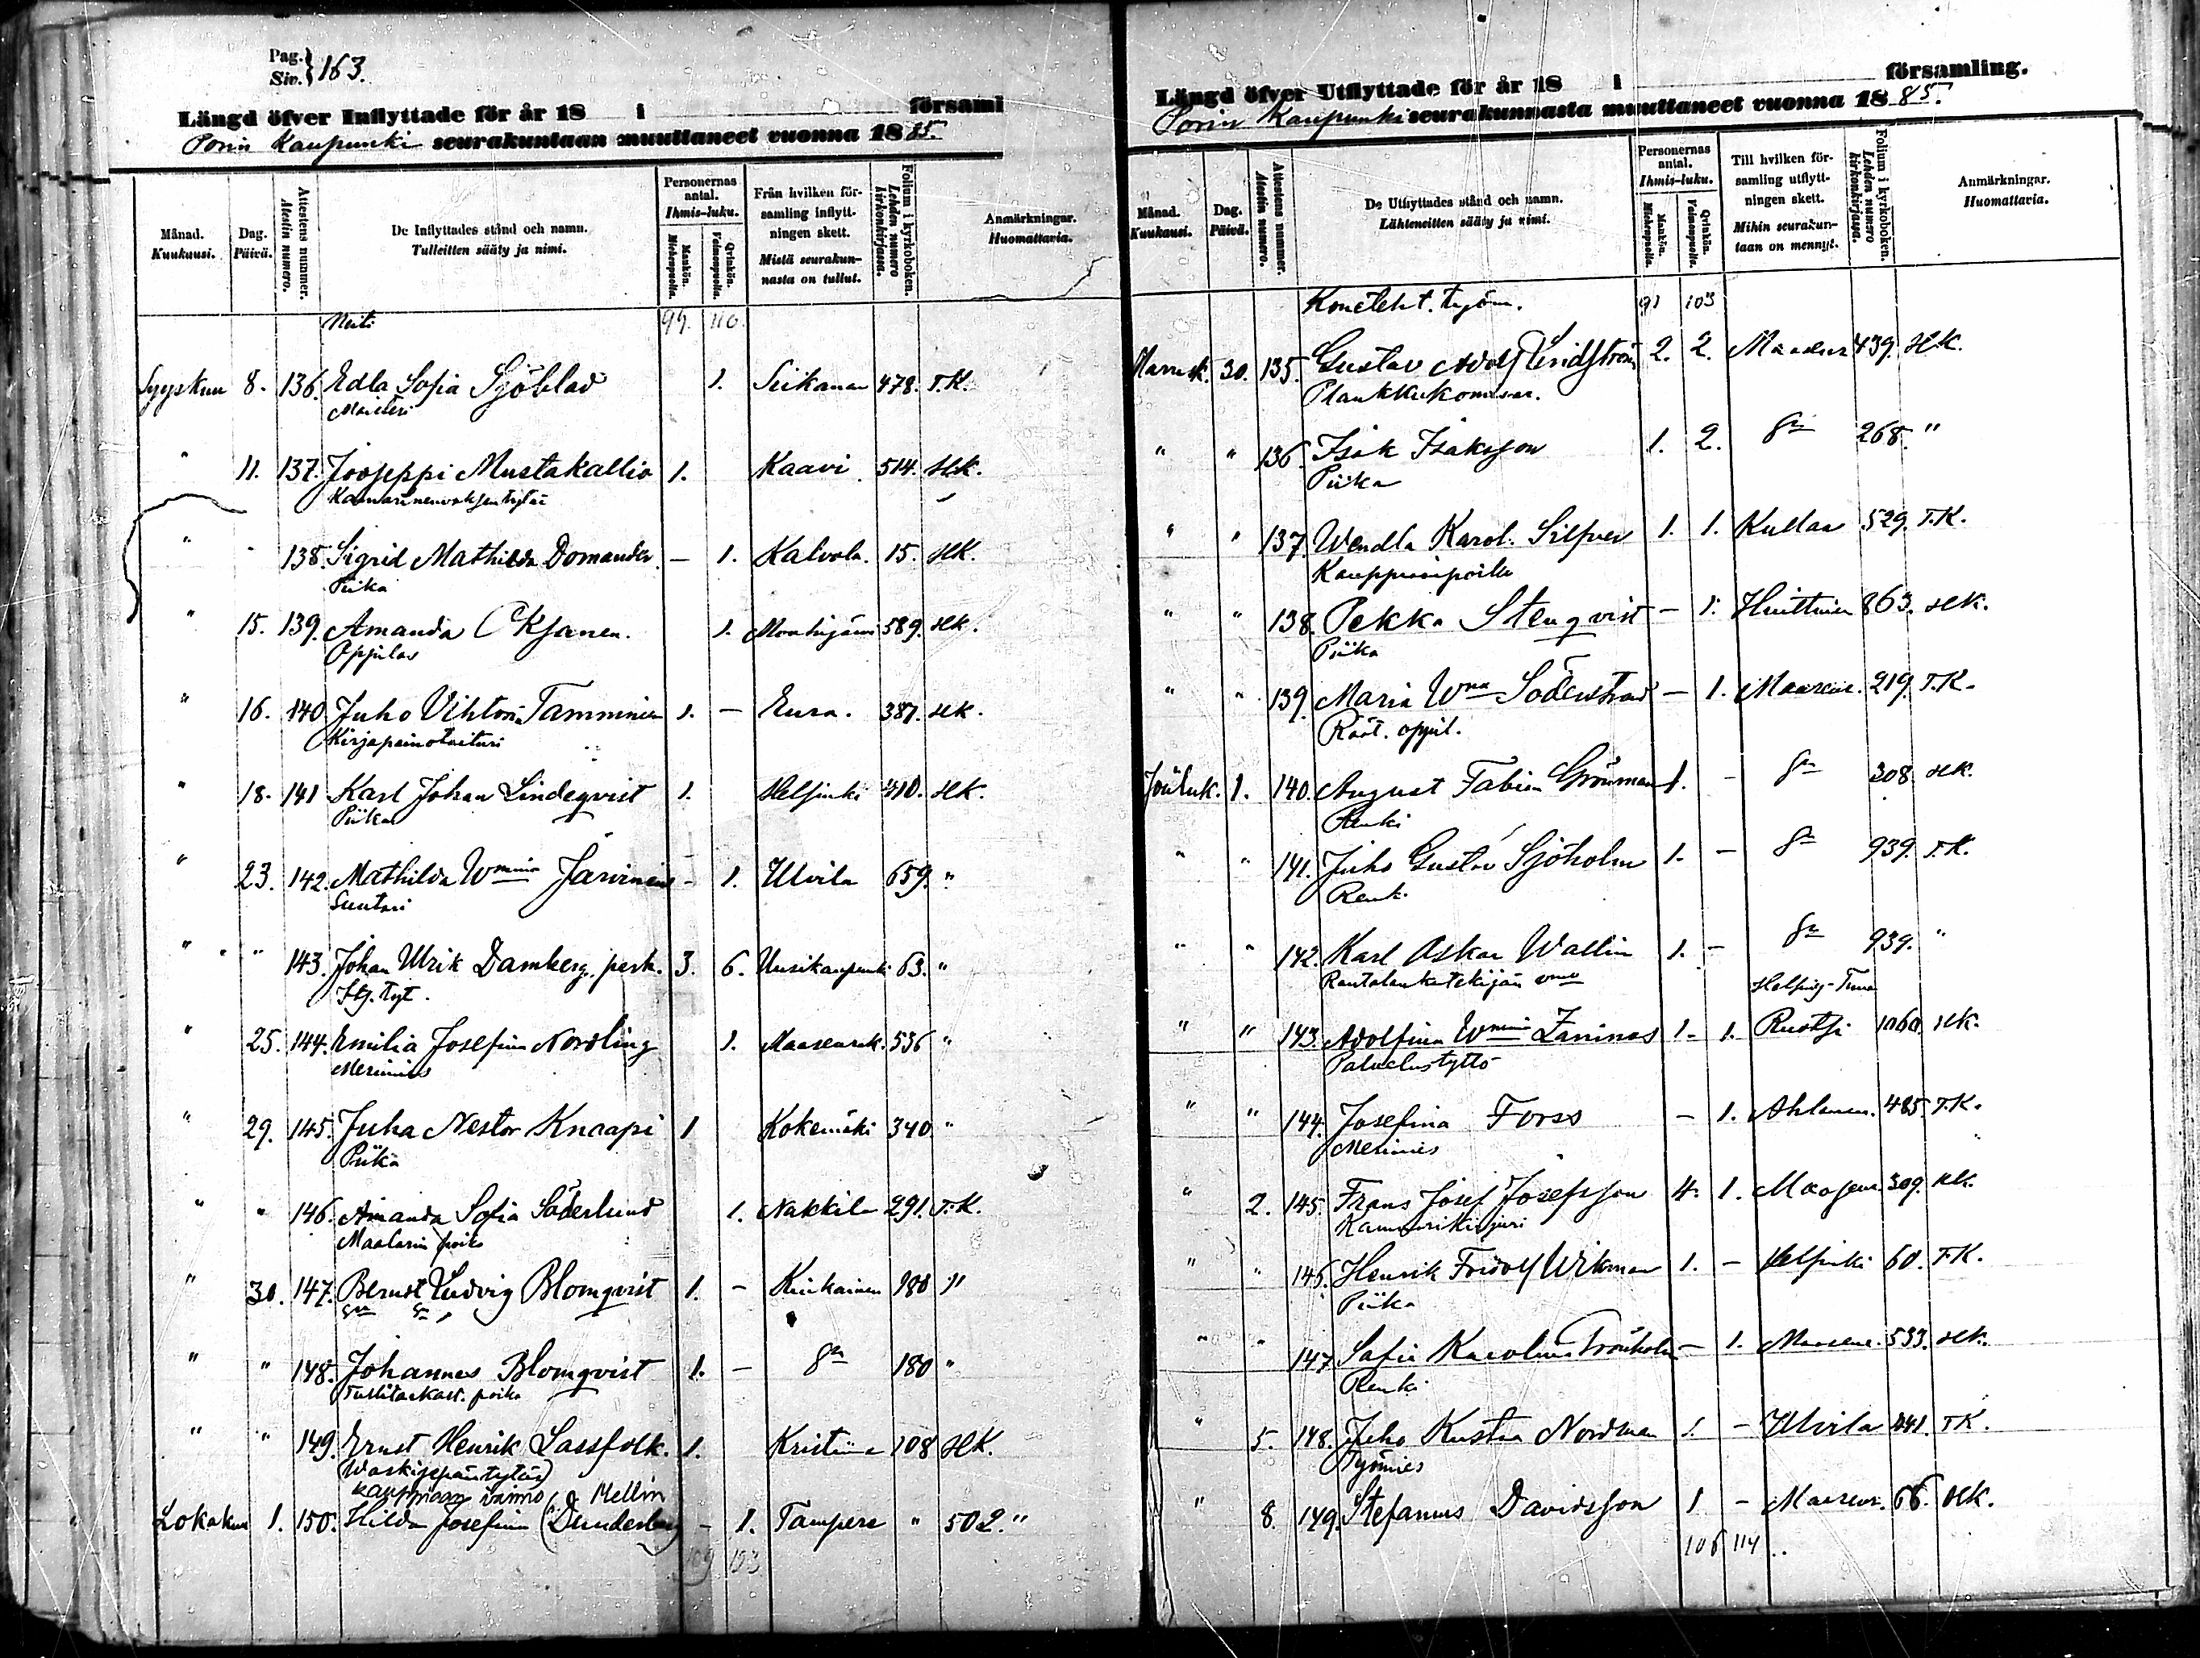 Pag. Siv. } 163.
Längd öfver Inflyttade för år 18 i församl
Porin Kaupunki seurakuntaan muuttaneet vuonna 18 85.
Månad. Kuukausi.
Dag. Päivä.
Attestens nummer. Atestin numero.
De Inflyttades stånd och namn. Tulleitten sääty ja nimi.
Personernas antal. Ihmis-luku.
Mankön. Miehenpuolia.
Qvinkön. Vaimonpuolia.
Från hvilken församling inflyttningen skett. Mistä seurakunnasta on tullut.
Folium i kyrkoboken. Lehden numero kirkonkirjassa.
Anmärkningar. Huomattavia.
Neiti 99. 110.
Syyskuu 8. 136. Edla Sofia Sjöblad 1. Siikanen 478. T.K.
Maisteri
" 11. 137. Joojeppi Mustakallio 1. Kaavi 514. SLK.
" 138. Sigrid Mathilda Domander — 1. Kalvola. 15. SLK.
Piika
" 15. 139. Amanda Oksanen. 1. 589. SLK.
Oppilas
" 16. 140. Juho Vihtori Tamminen 1. — Eura. 387. SLK.
Kirjapainotaituri
" 18. 141 Karl Johan Lindeqvist 1. Helsinki 410. SLK.
Piika
" 23. 142. Mathilda Wmina Järvinen - 1. Ulvila 659. "
Suutari
" " 143. Johan Ulrik Damberg, perh. 3. 6. Uusikaupunki 63. "
Itj. tyt.
" 25. 144. Emilia Josefina Nordling 1. Maaseurak. 536 "
Merimies
" 29. 145. Juha Nestor Knaapi 1 Kokemäki 340 "
Piika
" " 146. Amanda Sofia Söderlund 1. Nakkila 291. T.K.
Maalarin poika
" 30. 147. Bernst Ludvig Blomqvist 1. — Kiukainen 180 "
" " 148. Johannes Blomqvist 1. — 180 "
Tullitarkast. poika
" " 149. Ernst Henrik Lassfolk. 1. Kristiina 108 SLK.
(Waskisepän tytär)
kauppiaan vaimo Mellin
Lokakuu 1. 150. Hilda Josefina (Dunderberg) - 1. Tampere " 502. "
109 123
Längd öfver Utflyttade för år 18 i församling.
Porin Kaupunki seurakunnasta muuttaneet vuonna 18 85.
Månad. Kuukausi.
Dag. Päivä.
Attestens nummer. Atestin numero.
De Utflyttades stånd och namn. Lähteneitten sääty ja nimi.
Personernas antal. Ihmis-luku.
Mankön. Miehenpuolia.
Qvinkön. Vaimonpuolia.
Till hvilken församling utflyttningen skett. Mihin seurakuntaan on mennyt.
Folium i kyrkoboken. Lehden numero kirkonkirjassa.
Anmärkningar. Huomattavia.
Koneteht. työm. 91 103
Marrask. 30. 135. Gustav Adolf Lindström 2. 2. 439. SLK.
" " 136. Isak Isaksson 1. 2. 268. "
Piika
" " 137. Wendla Karol. Silfver 1. 1. Kullaa 529. T.K.
" " 138. Pekka Stenqvist — 1. Huittinen 863. SLK.
Piika
" " 139. Maria Wna Söderstrand — 1. 219. T.K.
Räät. oppil.
Jouluk. 1. 140. August Fabian Grönman 1. - 308. SLK.
Renki
" " 141. Juho Gustav Sjöholm 1. — 939. T.K.
Renki
" " 142. Karl Oskar Wallin 1. — 939. "
" " 143. Adolfina Wmina Zaninas 1- 1. 1060. SLK.
Palvelustyttö
" " 144. Josefina Forss — 1. Ahlainen. 485 T.K.
Merimies
" 2. 145. Frans Josef Josefsson 4. 1. Maaseur. 309. SLK.
Kammarikirjuri
" " 146. Henrik Fridolf Wikman 1. — Helsinki 60. T.K.
Piika
" " 147 Sofia Karolina Trönholm — 1. Maaseur. 533. SLK.
Renki
" 5. 148. Juho Kustaa Nordman 1. — Ulvila 241. T.K.
Työmies
" 8. 149. Stefanus Davidsson 1 — Maaseur. 66. SLK.
106 114